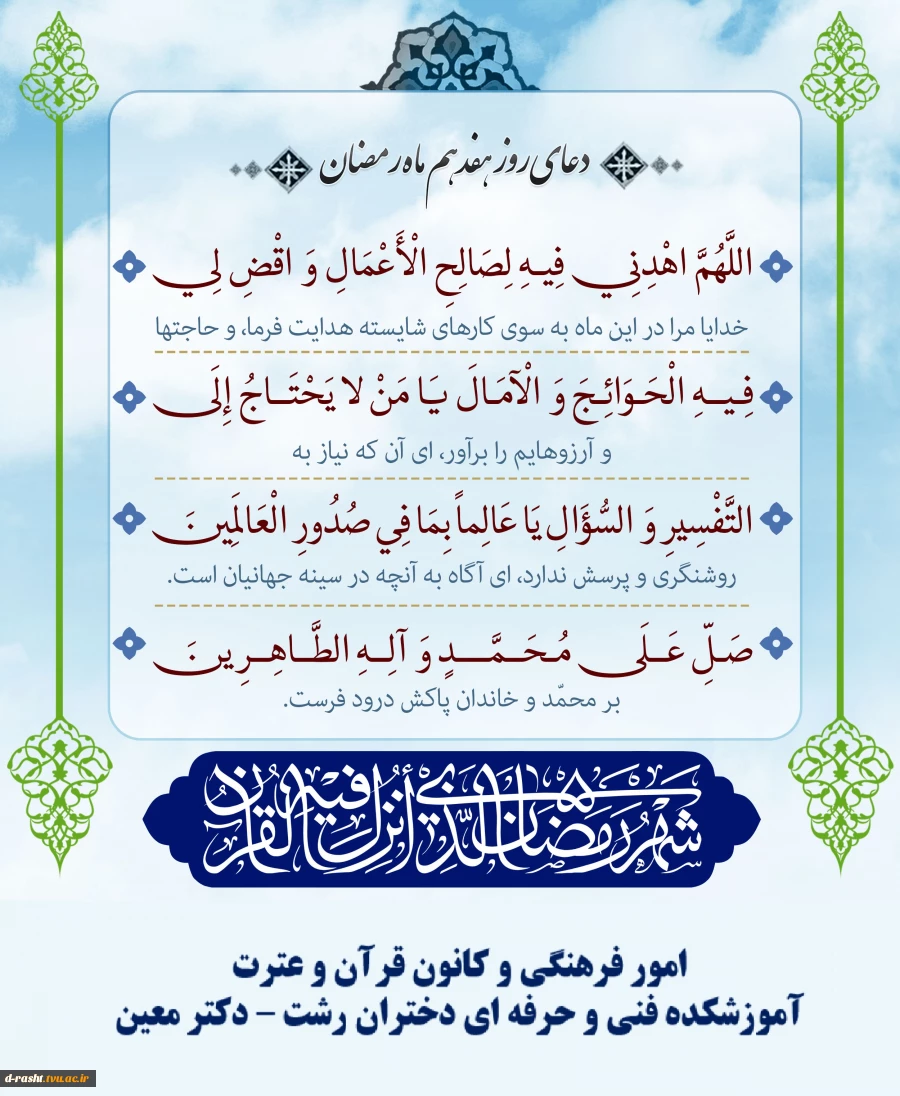 دعای روز هفدهم ماه رمضان
اللَّهُمَّ اهْدِنِي فِيهِ لِصَالِحِ الْأَعْمَالِ وَ اقْضِ لِي
خدایا مرا در این ماه به سوی کارهای شایسته هدایت فرما، و حاجتها
فِيهِ الْحَوَائِجَ وَ الْآمَالَ يَا مَنْ لا يَحْتَاجُ إِلَى
و آرزوهایم را برآور، ای آن که نیاز به
التَّفْسِيرِ وَ السُّؤَالِ يَا عَالِماً بِمَا فِي صُدُورِ الْعَالَمِينَ
روشنگری و پرسش ندارد، ای آگاه به آنچه در سینه جهانیان است.
صَلِّ عَلَى مُحَمَّدٍ وَ آلِهِ الطَّاهِرِينَ
بر محمّد و خاندان پاکش درود فرست.
شهر رمضان الذي أنزل فيه القرآن
امور فرهنگی و کانون قرآن و عترت
آموزشکده فنی و حرفه ای دختران رشت - دکتر معین
d-rasht.tvu.ac.ir